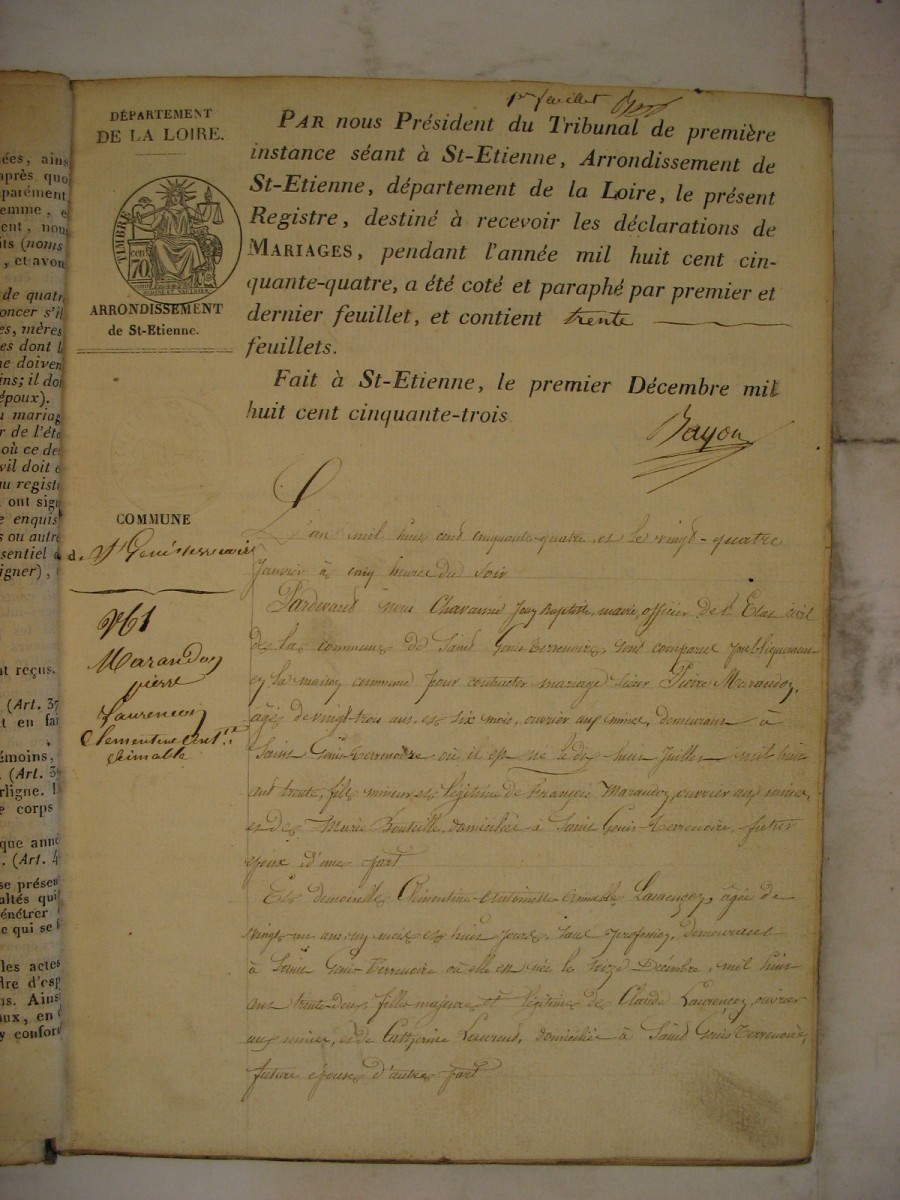 ées, ains
après quo
parément
emme, e
ent, nou
its (noms
, et avon
de quatr
oncer s'il
es, mères
es dont l
ne doiven
ins; il doi
époux).
u mariag
r de l'éta
où ce de
vil doit ê
au registr
ont sign
e enquis
s ou autre
sentiel
igner),
nt reçus.
(Art. 37
t en fai
émoins,
(Art. 3
rligne. L
e corps
que anné
. (Art. 4
se présen
altés qui
énétrer
ce qui se
les actes
dre d'esp
ns. Ains
aux, en
y confor
1er feuillet
DÉPARTEMENT
DE LA LOIRE.
TIMBRE
70 cen
ARRONDISSEMENT
de St-Etienne.
PAR nous Président du Tribunal de première
instance séant à St-Etienne, Arrondissement de
St-Etienne, département de la Loire, le présent
Registre, destiné à recevoir les déclarations de
MARIAGES, pendant l'année mil huit cent cin-
quante-quatre, a été coté et paraphé par premier et
dernier feuillet, et contient trente
feuillets.
Fait à St-Etienne, le premier Décembre mil
huit cent cinquante-trois
Bayon
COMMUNE
d. St Genisterrenoire
N° 1
Marandon
pierre
Laurençon
Clementine Antte
Aimable
L'an mil huit cent cinquante-quatre et le vingt-quatre
Janvier à cinq heures du soir
Pardevant nous Chavanne Jean Baptiste, maire, officier de l'Etat civil
de la commune de Saint Genis-terrenoire, sont comparus publiquement
en la maison commune pour contracter mariage sieur Pierre Marandon,
âgé de vingt-trois ans, et six mois, ouvrier aux mines, demeurant à
Saint Genis-terrenoire où il est né le dix huit Juillet mil huit
cent trente, fils mineur et légitime de François Marandon, ouvrier aux mines,
et de Marie Bouteille, domiciliés à Saint Genis-terrenoire, futur
epoux d'une part
Et demoiselle Clémentine Antoinette Aimable Laurençon, âgée de
vingt un ans, un mois et huit jours, sans profession, demeurant
à Saint Genis-terrenoire où elle est née le seize Décembre, mil huit
cent trente-deux, fille majeure et légitime de Claude Laurençon, ouvrier
aux mines, et de Catherine Laurent, domiciliés à Saint Genis terrenoire,
future épouse d'autre part